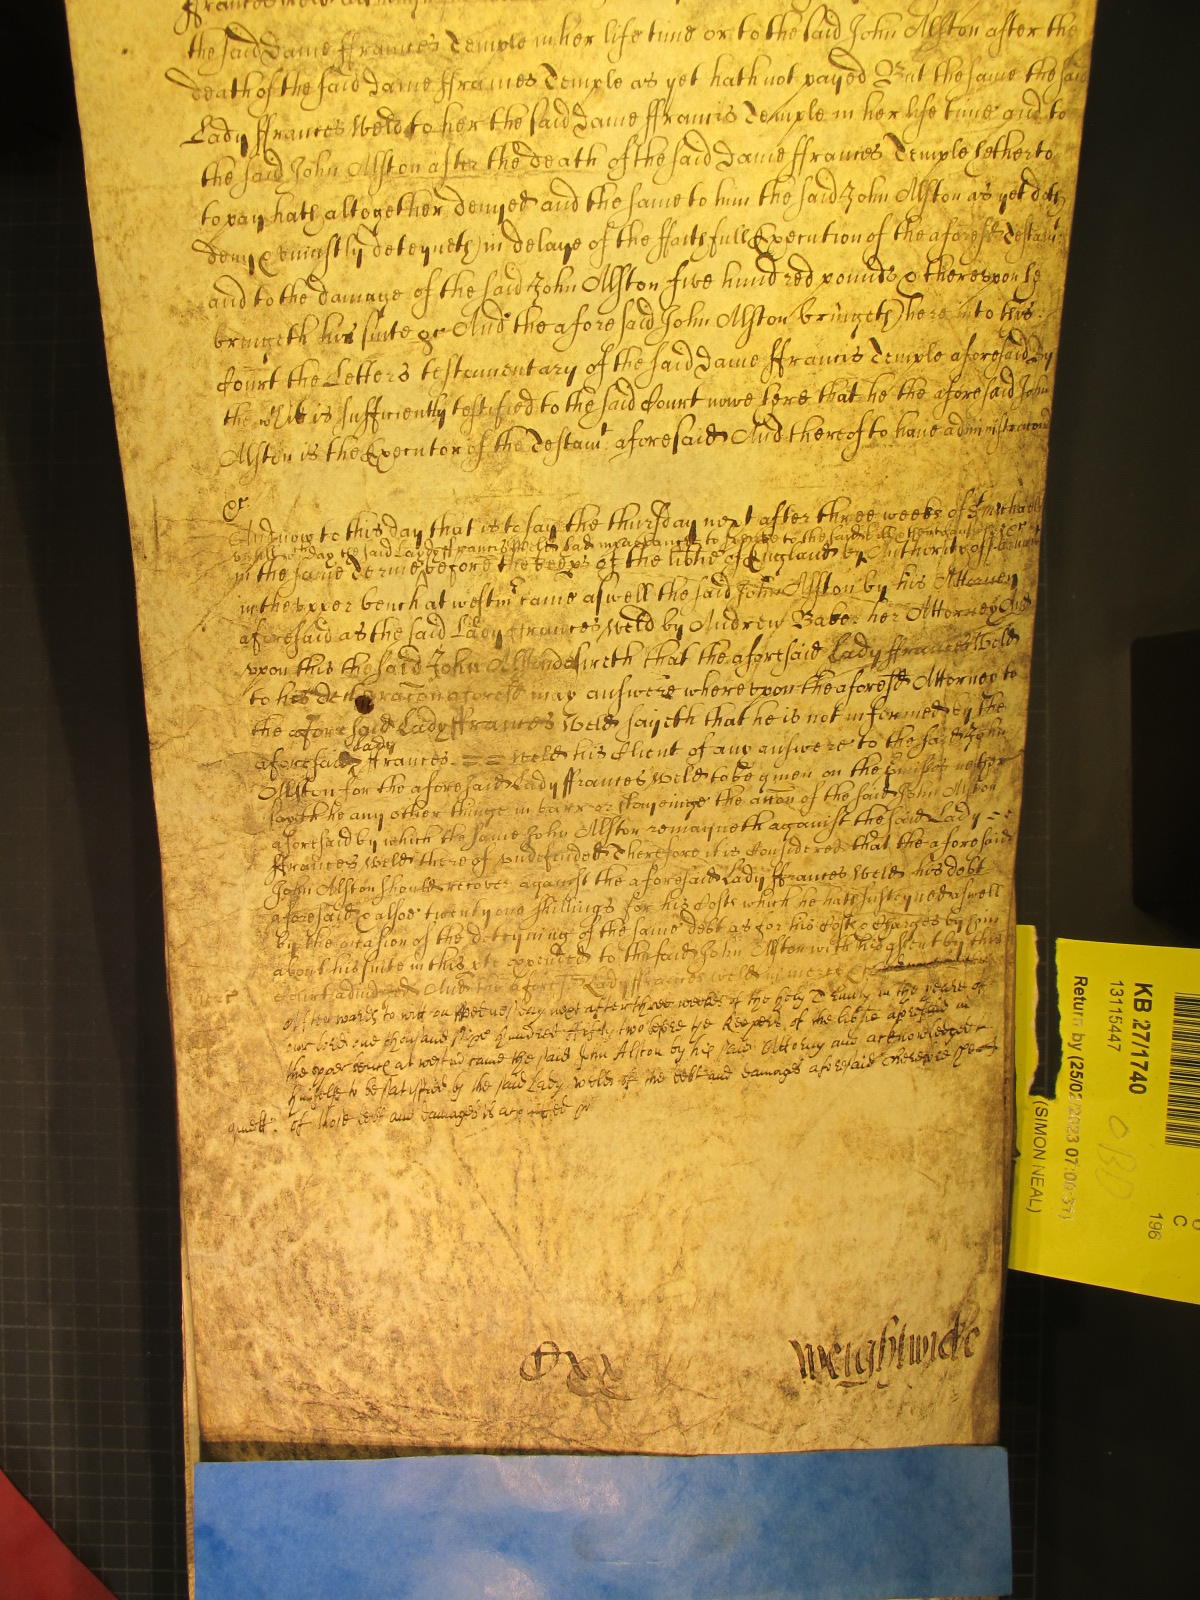 the said Dame ffrances Temple in her life time or to the said John Alston after the
death of the said Dame ffrances Temple as yet hath not payed But the same the said
Lady ffrances Weld to her the said Dame ffrancis Temple in her life time and to
the said John Alston after the death of the said Dame ffrances Temple hetherto
to pay hath altogether denyed and the same to him the said John Alston as yet doth
deny & uniustly deteyneth in delaye of the ffaithfull Execution of the aforesd Testamt
and to the damage of the said John Alston five hundred pounds & thereupon he
bringeth his suite &c And the aforesaid John Alston bringeth here into this
Court the Letters testamentary of the said Dame ffrancis Temple aforesaid By
the wch it is sufficiently testified to the said Court nowe here that he the aforesaid John
Alston is the Executor of the Testamt aforesaid And thereof to have administracon
&c
And now to this day that is to say the thursday next after three weekes of St Michael
untill wch day the said Lady ffrances Weld had to the said
in the same Terme before the keeps of the libtie of England by Authority of
in the upper bench at westmr came aswell the said John Alston by his Attorney
aforesaid as the said Lady ffrances Weld by Andrew Baber her Attorney And
upon this the said John Alston desireth that the aforesaid Lady ffrances Weld
to his declaracon aforesd may answere whereupon the aforesd Attorney to
the aforesaid Lady ffrances Weld sayeth that he is not informed by the
Lady
aforesaid ffrances == Weld his Client of any answere to the said John
Alston for the aforesaid Lady ffrances Weld to be given on the pmisses neither
sayth he any other thinge in barr or the accon of the said John Alston
aforesaid by which the same John Alston remayneth against the said Lady ==
ffrances Weld thereof undefended Therefore it is Considered that the aforesaid
John Alston should recover against the aforesaid Lady ffrances Weld his debt
aforesaid & alsoe twenty one shillings for his Costs which he hath susteyned aswell
by the occasion of the deteyning of the same debt as for his Costs & Charges by him
about his suite in this pte expended to the said John Alston with his assent by this
Court adiudged And the aforesd Lady ffrances Weld in mercy &c
Afterwards to wit on next after three weekes of the holy Trinity in the yeare of
our lord one thousand sixe hundred ffifty two before the Keepers of the libtie aforesaid in
the upper bench at westmr came the said John Alston by his said Attorny and acknowledged
himselfe to be satisffied by the said Lady weld of the debt and damages aforesaid Therefore
of those debt and damages is acquitted &c
Weightwicke
KB 27/1740
13115447
Return by (25/02/2023 07:00:37)
(SIMON NEAL)
OBD
196
C